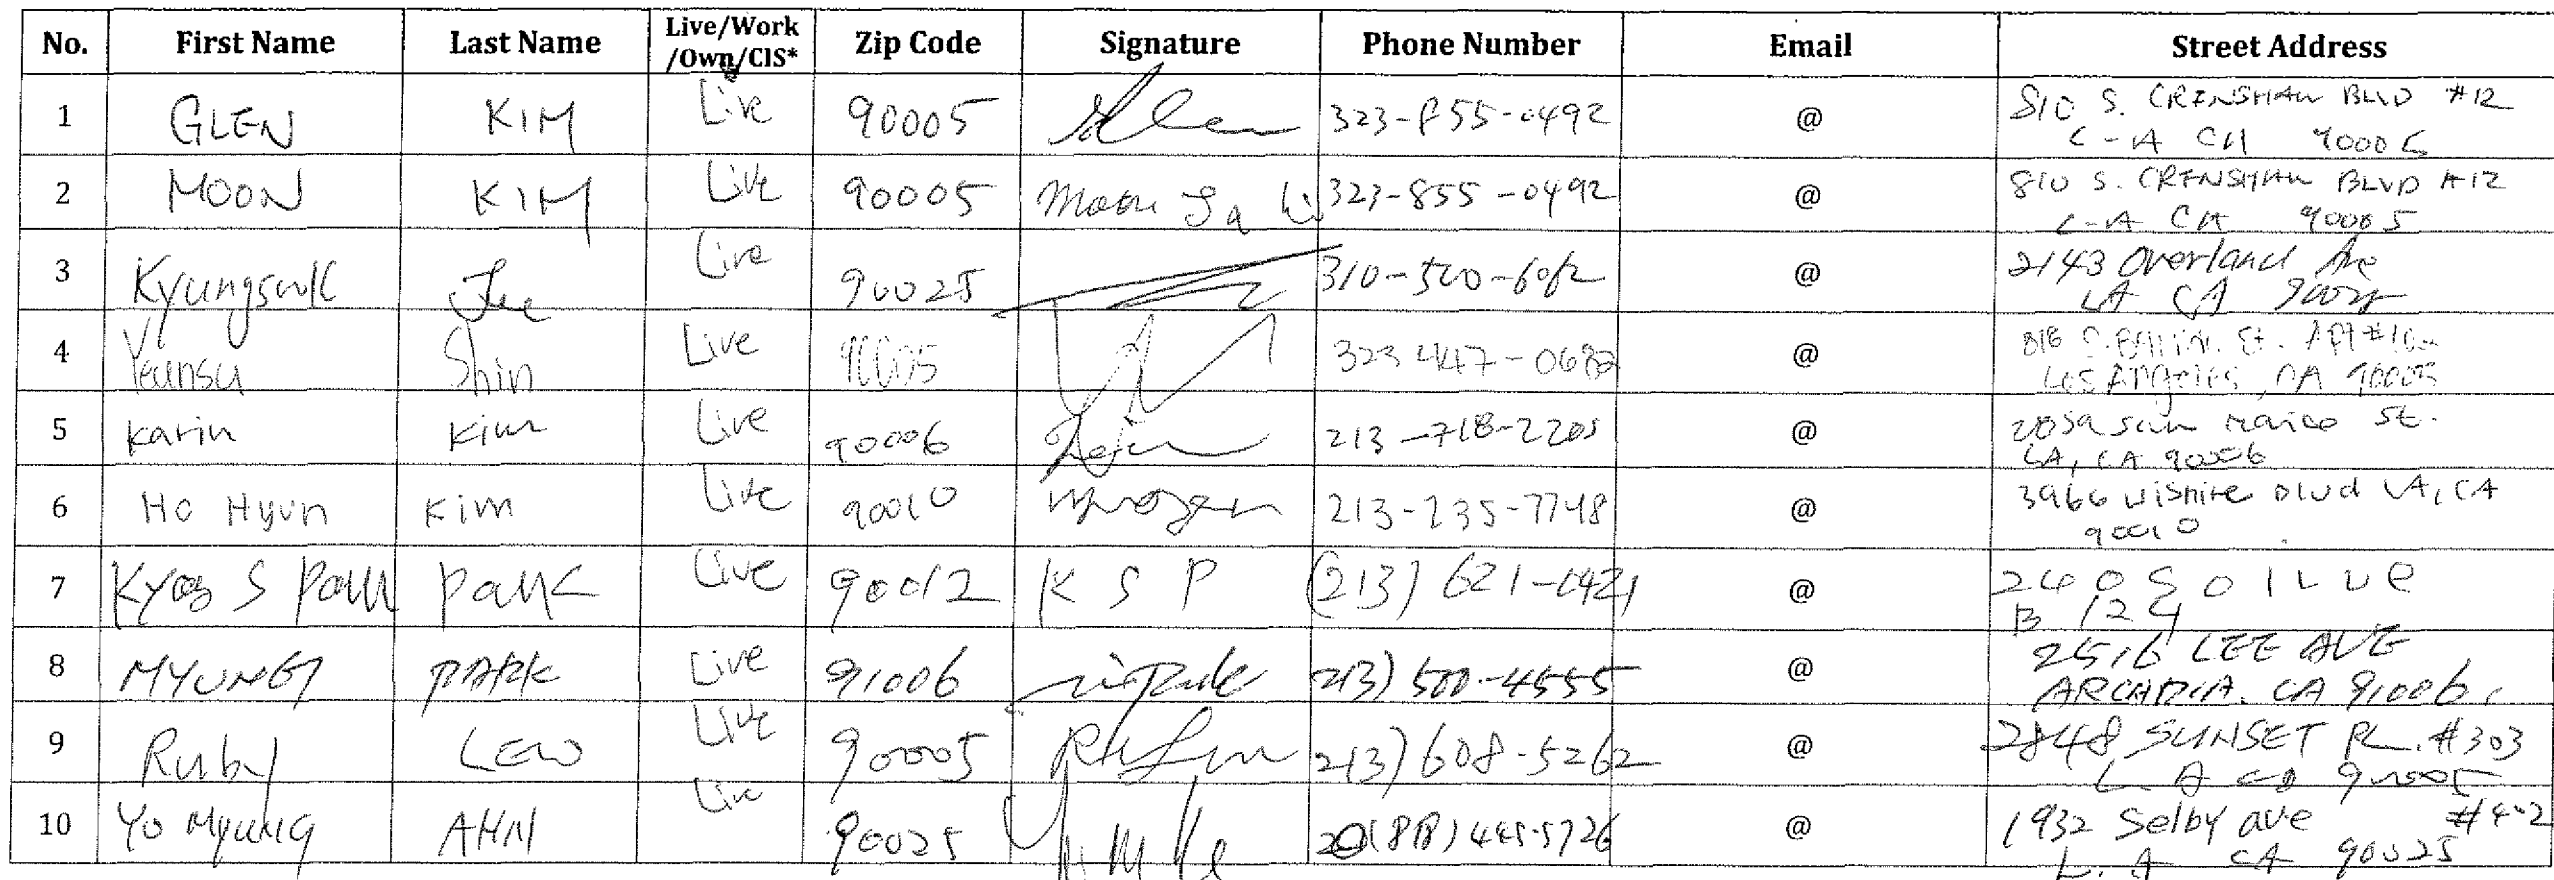 No. First Name Last Name Live/Work /Own/CIS* Zip Code Signature Phone Number Email Street Address
1 GLEN KIM Live 90005 323-855-0492 @ 810 S. CRENSHAW BLVD #12
L-A CA 90005
2 MOON KIM Live 90005 Moon Ja Ki 323-855-0492 @ 810 S. CRENSHAW BLVD #12
L-A CA 90005
3 Live 90025 @ 2143 Overland Ave
LA CA
4 Yeunsu Shin Live 90005 323 447-0682 @ 818 S. St. APT
Los Angeles, CA 90005
5 Karin Kim Live 90006 213-718-2205 @ San St.
LA, CA 90006
6 Ho Hyun Kim Live 90010 213-235-7748 @ 3966 Wishire Blvd LA, CA
90010
7 S Live 90012 K S P (213) 621-0421 @ 240 S Olive
B 124
8 MYUNG PARK Live 91006 213) 500-4555 @ 2516 LEE AVE
ARCADIA. CA 91006
9 Ruby LEW Live 90005 213) 608-5262 @ 2848 SUNSET PL. #303
L A CA 90005
10 Yo Myung AHN Live 90025 (818) 445-5726 @ 1932 Selby ave #402
L. A CA 90025